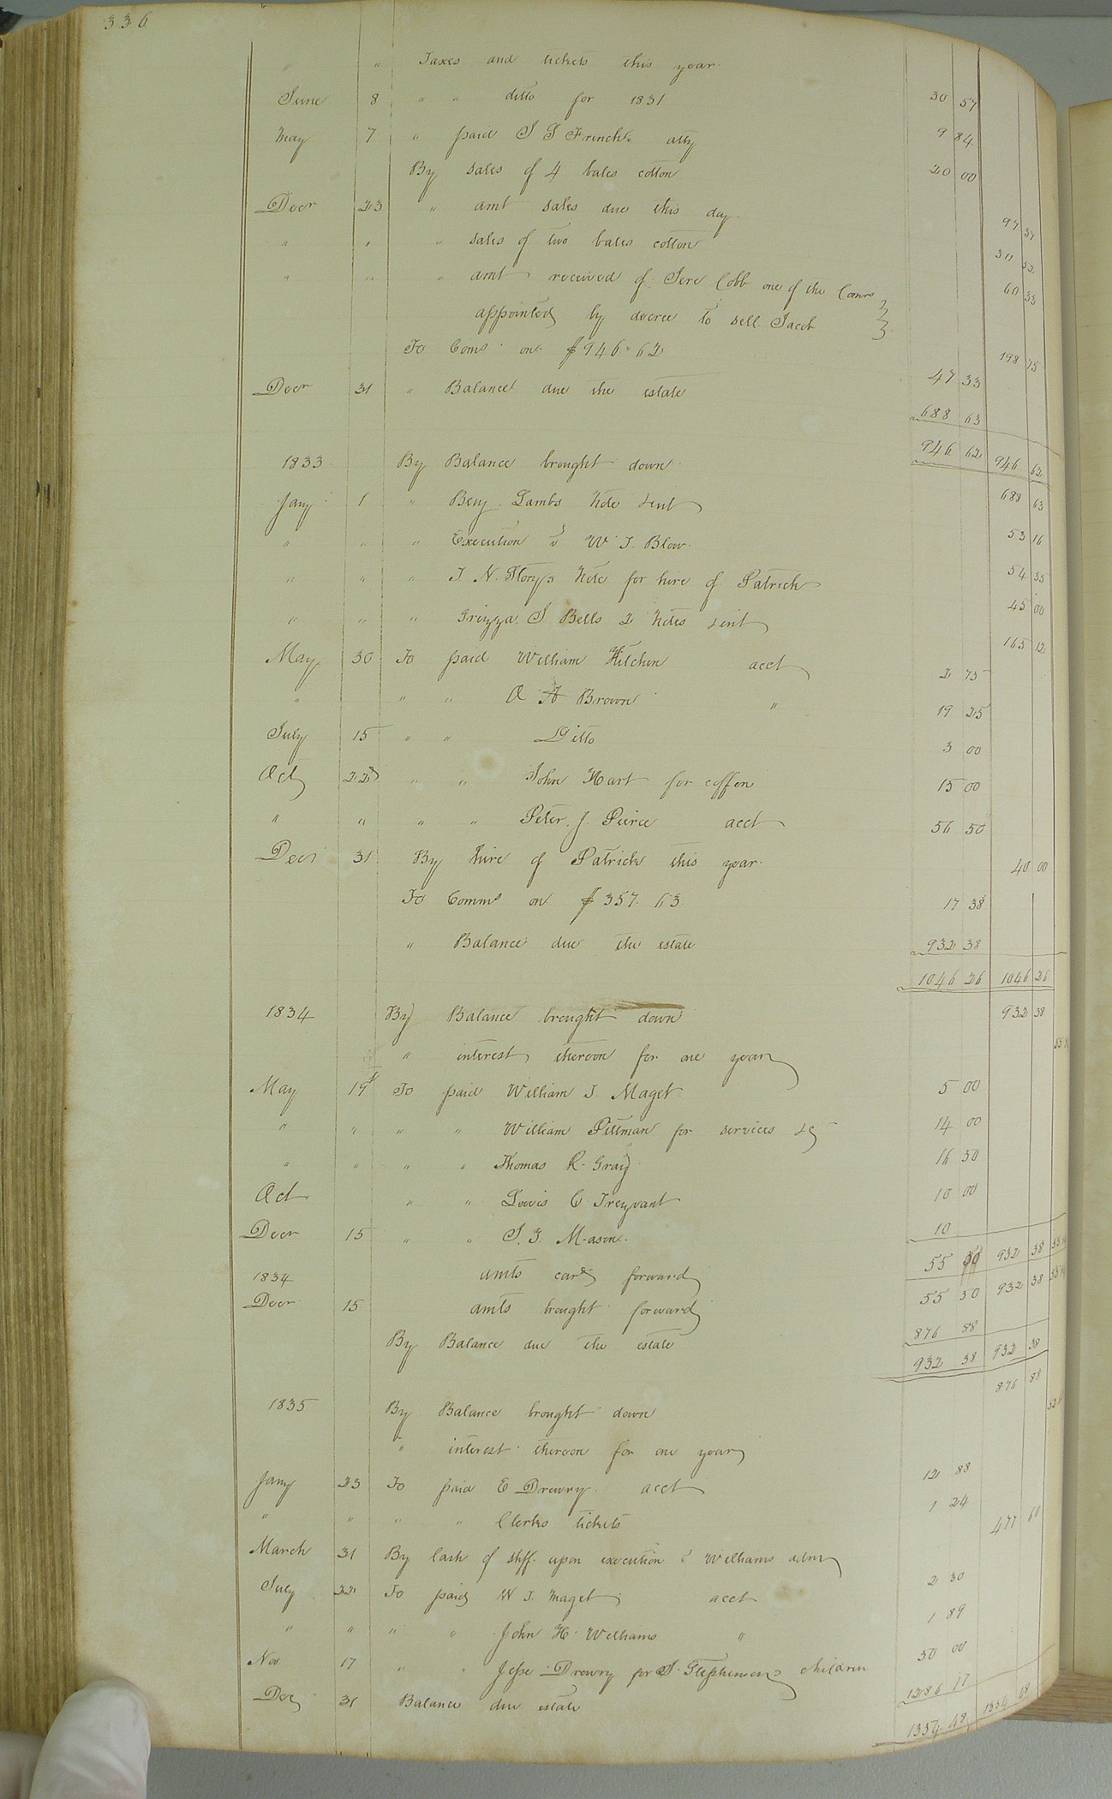 336
" " Taxes and tickets this year 30 57
June 8 " " ditto for 1831 9 84
May 7 " paid S S French atty 20 00
By sales of 4 bales cotton 97 37
Decr 23 " amt sales due this day 311 52
" " " sales of two bales cotton 60 33
" " " amt received of Jere Cobb one of the Comrs
appointed by decree to sell Jacob 198 75
To Coms on $946.62 47 33
Decr 31 " Balance due the estate 688 63
946 62 946 62
1833 By Balance brought down 688 63
Jany 1 " Benj Lambs Note 53 16
" " " Execution vs W. J. Blow 54 35
" " " J. N. Storys Note for hire of Patrick 45 00
" " " S Bells 2 Notes 165 12
May 30 To paid William Kitchen acct 2 75
" " " A Brown " 19 25
July 15 " " Ditto 3 00
Oct 22 " " John Hart for coffin 15 00
" " " " Peter J. Peirce acct 56 50
Decr 31 By hire of Patrick this year 40 00
To Comms on $357.63 17 38
" Balance due the estate 932 38
1046 26 1046 26
1834 By Balance brought down 932 38
" interest thereon for one year
May 19 To paid William J. Maget 5 00
" " " " William Pittman for services 14 00
" " " " Thomas R. Gray 16 30
Oct " " Lewis C Trezvant 10 00
Decr 15 " " Mason 10
amts card forward 55 30 932 38
1834
Decr 15 amts brought forward 55 30 932 38
By Balance due the estate 876 88
932 38 932 38
1835 By Balance brought down 876 88
" interest thereon for one year
Jany 23 To paid E Drewry acct 12 88
" " " " Clerks tickets 1 24
March 31 By Cash of shff. upon execution vs Williams admr 477 60
July 22 To paid W J. Maget acct 2 30
" " " " John H. Williams " 1 89
Nov 17 " " Jesse Drewry for Stephensons children 50 00
Dec 31 Balance due estate 1286 17
1354 48 1354 48